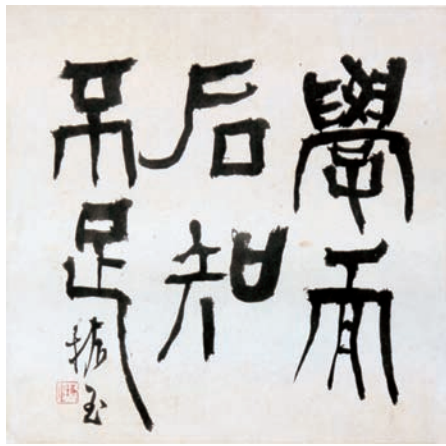 學而
后知
不足
振玉